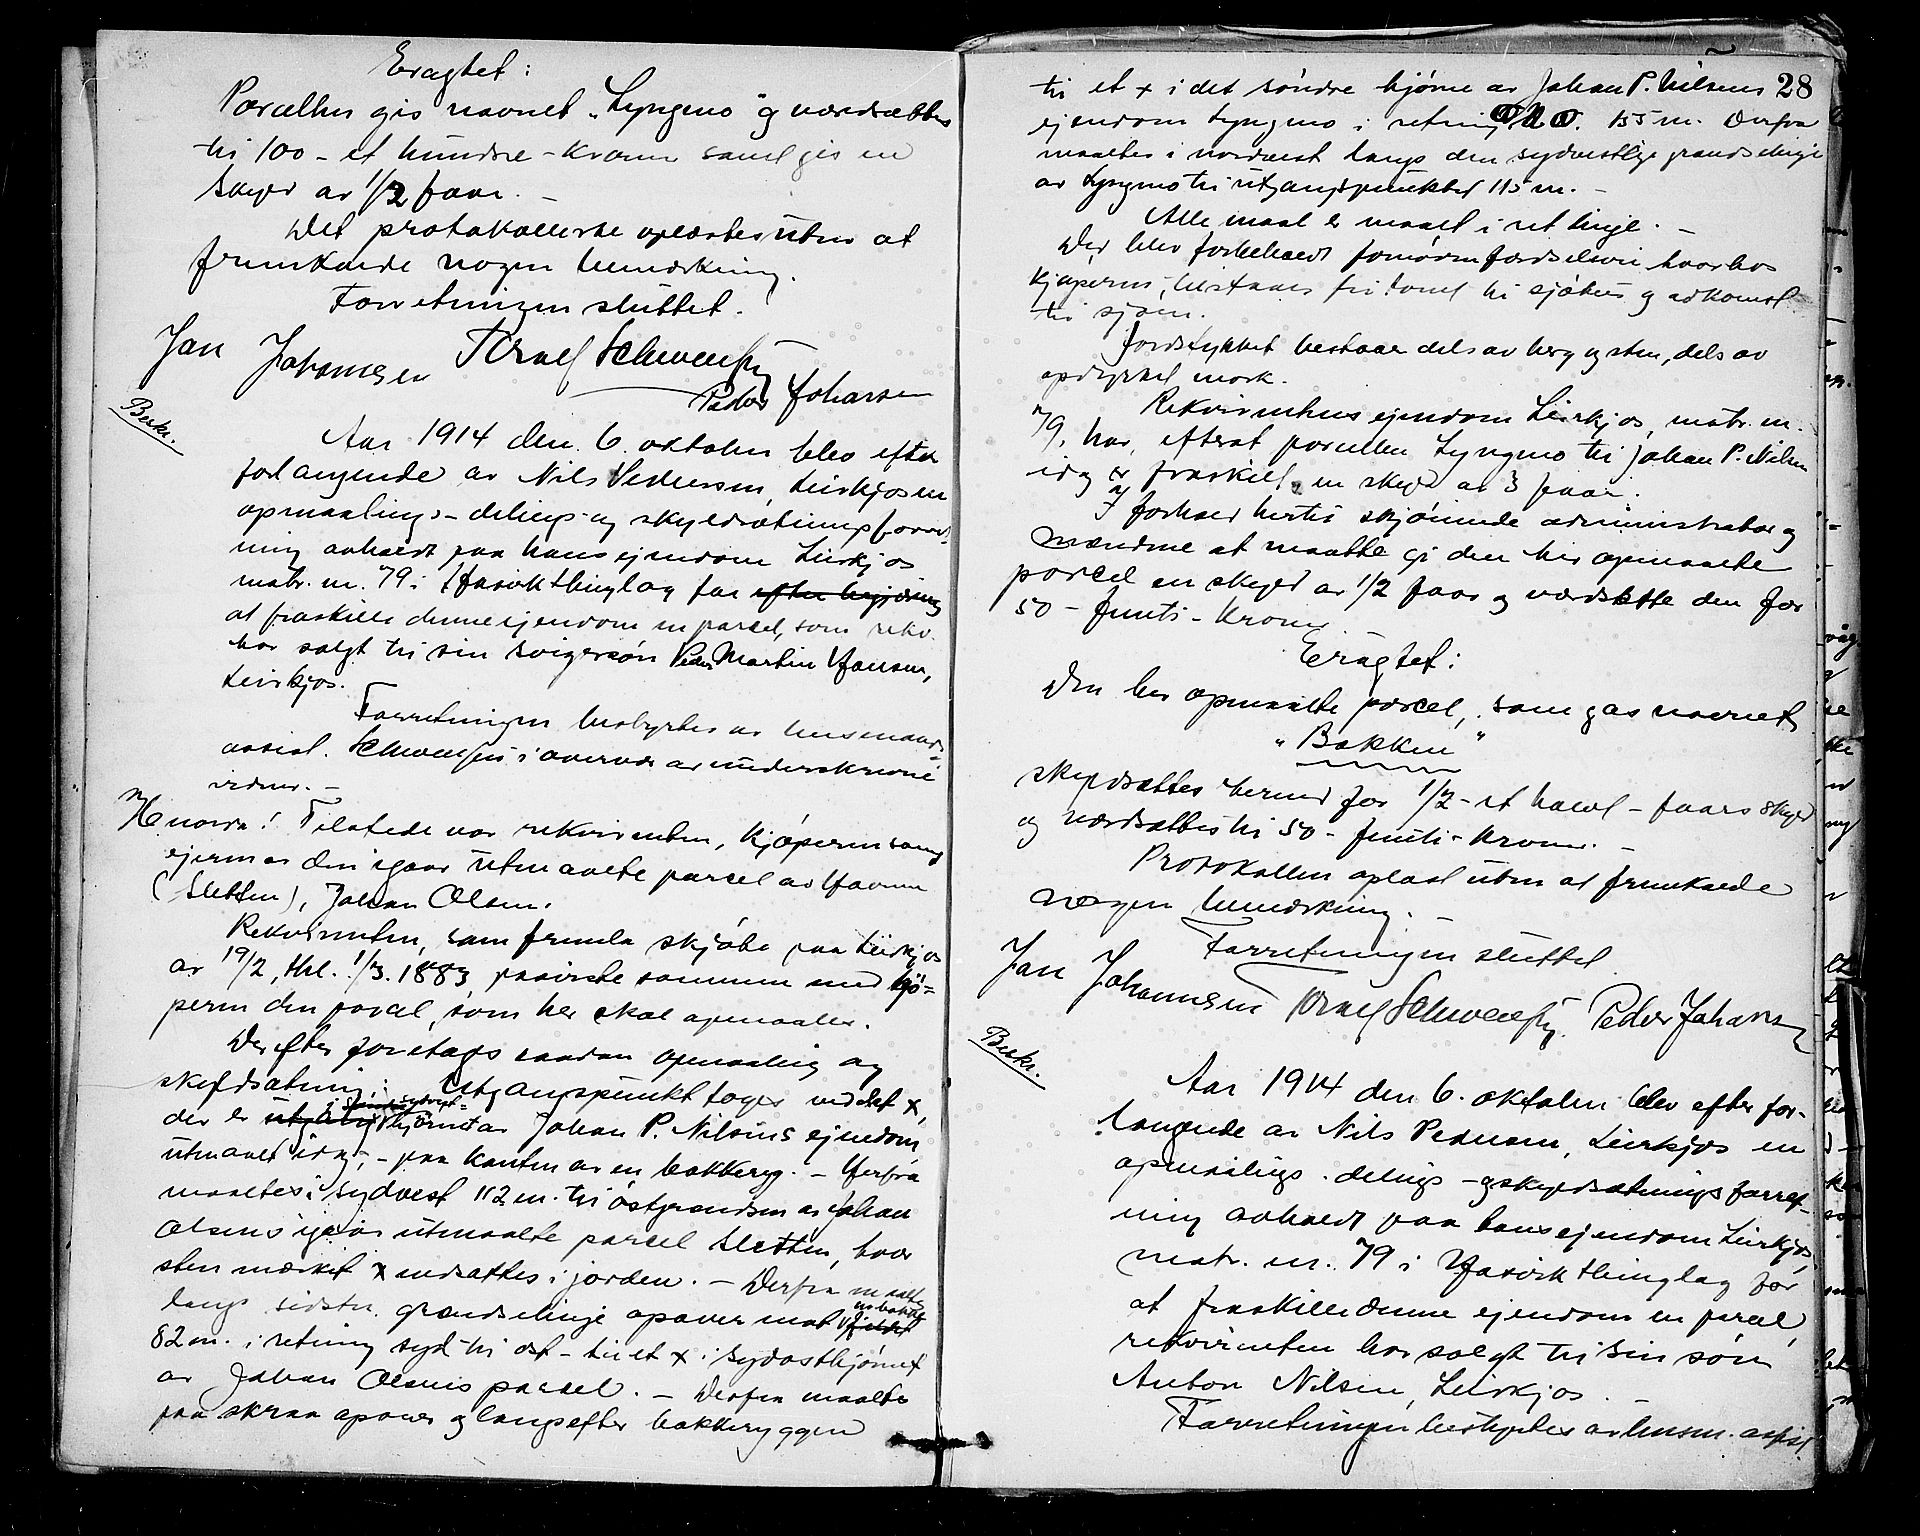 Eragtet:
Parcellen gis navnet "Lyngmo" og værdsættes
til 100 - et hundre - kroner samt gis en
skyld av 1/2 faar. -
Det protokollerte oplæstes uten at
fremkalde nogen bemærkning.
Forretningen sluttet.
Jan Johansen Israel Schwensky
Peder Johansen
Beskr.
Aar 1914 den 6. oktober blev efter
forlangende av Nils Pedersen, Leirkjos en
opmaalings- delings- og skyldsætningsforret-
ning avholdt paa hans ejendom Leirkjos
matr. nr. 79 i thinglag for efter begjæring
at fraskille denne ejendom en parcel, som rekv.
har solgt til sin svigersøn Peder Martin Hansen,
Leirkjos.
Forretningen bestyrtes av lensmands-
assist. Schwensky i overvær av underskrevne
vidner. -
nærv! Tilstede var rekvirenten, kjøperen samt
ejeren av den igaar utmaalte parcel av
(Sletten), Johan Olsen.
Rekvirenten, som fremla skjøte paa Leirkjos
av 19/2, thl. 1/3. 1883, paaviste sammen med kjø-
peren den parcel, som her skal opmaales.
Derefter foretages saadan opmaaling og
skyldsætning: Utgangspunkt toges ved det x,
der er i søndre sydvest-
hjørnet av Johan P. Nilsens ejendom
utmaalt idag, - paa kanten av en bakkeryg. - Herfra
maaltes i sydvest 112 m. til østgrændsen av Johan
Olsens igaar utmaalte parcel Sletten, hvor
sten mærket x nedsattes i jorden. - Derfra maaltes
langs sidstn. grændselinje opover mot
82 m. i retning syd til ost - til et x i sydosthjørnet
av Johan Olsens parcel. - Derfra maaltes
paa skraa opover og langsefter bakkeryggen
28
til et x i det søndre hjørne av Johan P. Nilsens
ejendom Lyngmo i retning ono. 155 m. Derfra
maaltes i nordvest langs den sydvestlige grændselinje
av Lyngmo til utgangspunktet 115 m. -
Alle maal er maalt i ret linje. -
Der blev forbeholdt fornøden færdselsvei hvorhos
kjøperen tilstaaes fri tomt til sjøhus og adkomst
til sjøen.
Jordstykket bestaar dels av berg og sten, dels av
opdyrket mark.
Rekvirentens ejendom Leirkjos, matr. nr.
79, har, efterat parcellen Lyngmo til Johan P. Nilsen
idag er fraskilt, en skyld av 3 faar.
I forhold hertil skjønnede administrator og
mændene at maatte gi den her opmaalte
parcel en skyld av 1/2 faar og værdsætte den for
50 - femti - kroner.
Eragtet:
Den her opmaalte parcel, som gas navnet
"Bakken"
skyldsættes herved for 1/2 - et halvt - faars skyld
og værdsættes til 50 - femti - kroner. -
Protokollen oplæst uten at fremkalde
nogen bemærkning. -
Forretningen sluttet
Jan Johannesen Israel Schwensky. Peder Johansen
Beskr.
Aar 1914 den 6. oktober blev efter for-
langende av Nils Pedersen, Leirkjos en
opmaalings- delings- og skyldsætningsforret-
ning avholdt paa hans ejendom Leirkjos,
matr. nr. 79 i thinglag for
at fraskille denne ejendom en parcel,
rekvirenten har solgt til sin søn
Anton Nilsen, Leirkjos.
Forretningen bestyrtes av lensm. assist.